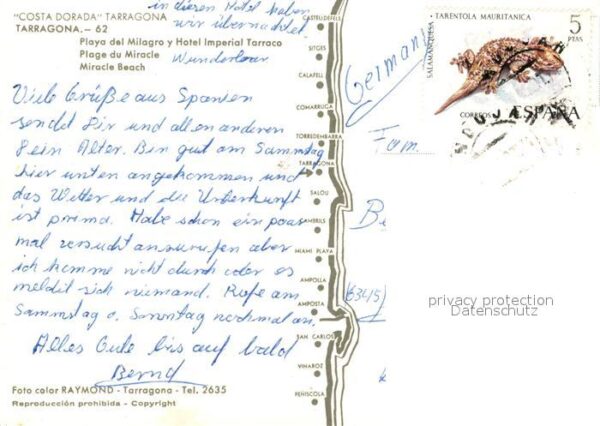 in diesem Hotel haben
wir übernachtet
"COSTA DORADA" TARRAGONA
TARRAGONA.— 62
Playa del Milagro y Hotel Imperial Tarraco
Plage du Miracle
Miracle Beach
Wunderbar
Viele Grüße aus Spanien
sendet Dir und allen anderen
Dein Alter. Bin gut am Samstag
hier unten angekommen und
das Wetter und die Unterkunft
ist prima. Habe schon ein paar
mal versucht anzurufen aber
ich komme nicht durch oder es
meldit sich niemand. Rufe am
Samstag o. Sonntag nochmal an.
Alles Gute bis auf bald
Bernd
Foto color RAYMOND - Tarragona - Tel. 2635
Reproducción prohibida - Copyright
CASTELLDEFELS
SITGES
CALAFELL
COMARRUGA
TORREDEMBARRA
TARRAGONA
SALOU
CAMBRILS
MIAMI PLAYA
AMPOLLA
AMPOSTA
SAN CARLOS
VINAROZ
PEÑISCOLA
Germany
Fam
(6345)
SALAMANQUESA
TARENTOLA MAURITANICA
5
PTAS
CORREOS ESPAÑA
privacy protection
Datenschutz